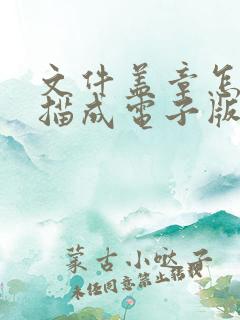 文件盖章怎
描成電子版
蒙古小哒子
未经同意禁止转载